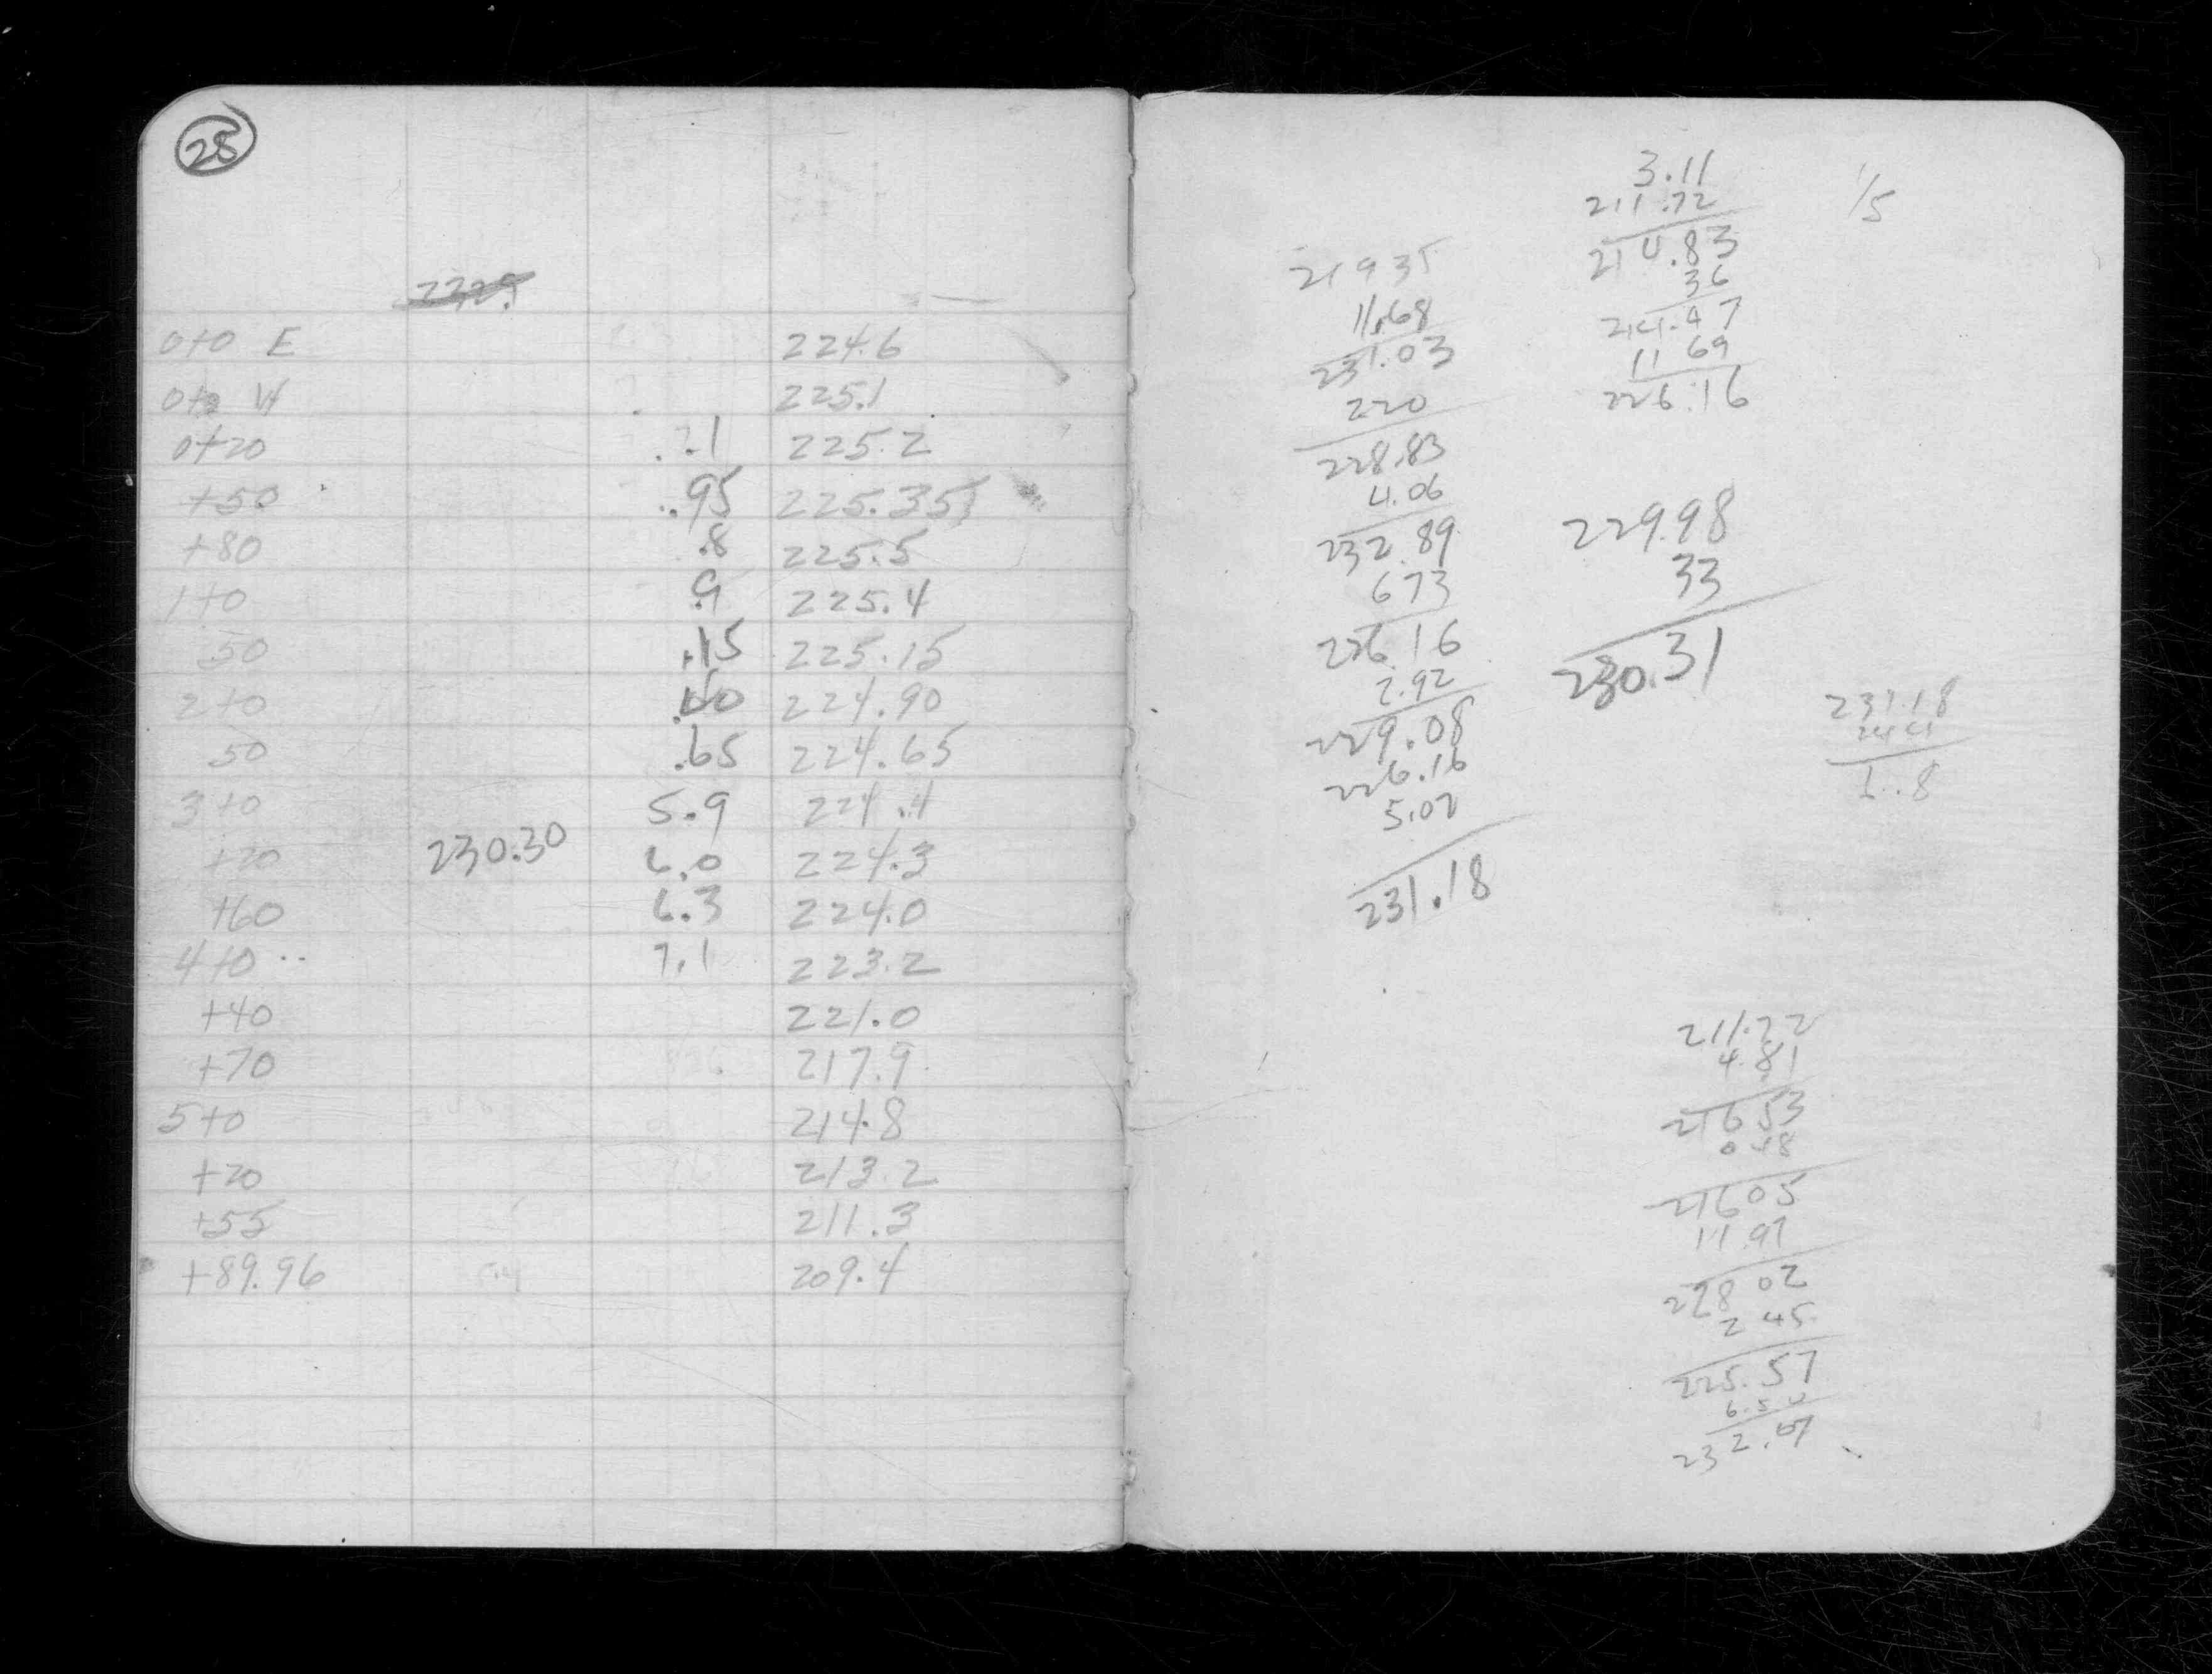 28
0+0 E 224.6
0+0 W 225.1
0+20 .21 225.2
+50 .95 225.35
+80 .8 225.5
1+0 .9 225.4
50 .15 225.15
2+0 224.90
50 .65 224.65
3+0 5.9 224.4
+20 230.30 6.0 224.3
+60 6.3 224.0
4+0 7.1 223.2
+40 221.0
+70 217.9
5+0 214.8
+20 213.2
+55 211.3
+89.96 209.4
219 35
11.68
231.03
220
228.83
4.06
232.89
673
226.16
2.92
229.08
226.16
5.02
231.18
3.11
211.72
214.83
36
214.47
11 69
226.16
1/5
229.98
33
230.31
231.18
1..8
211.72
4.81
216 53
0 48
216 05
11.97
228 02
2 45
225.57
6.50
232.07